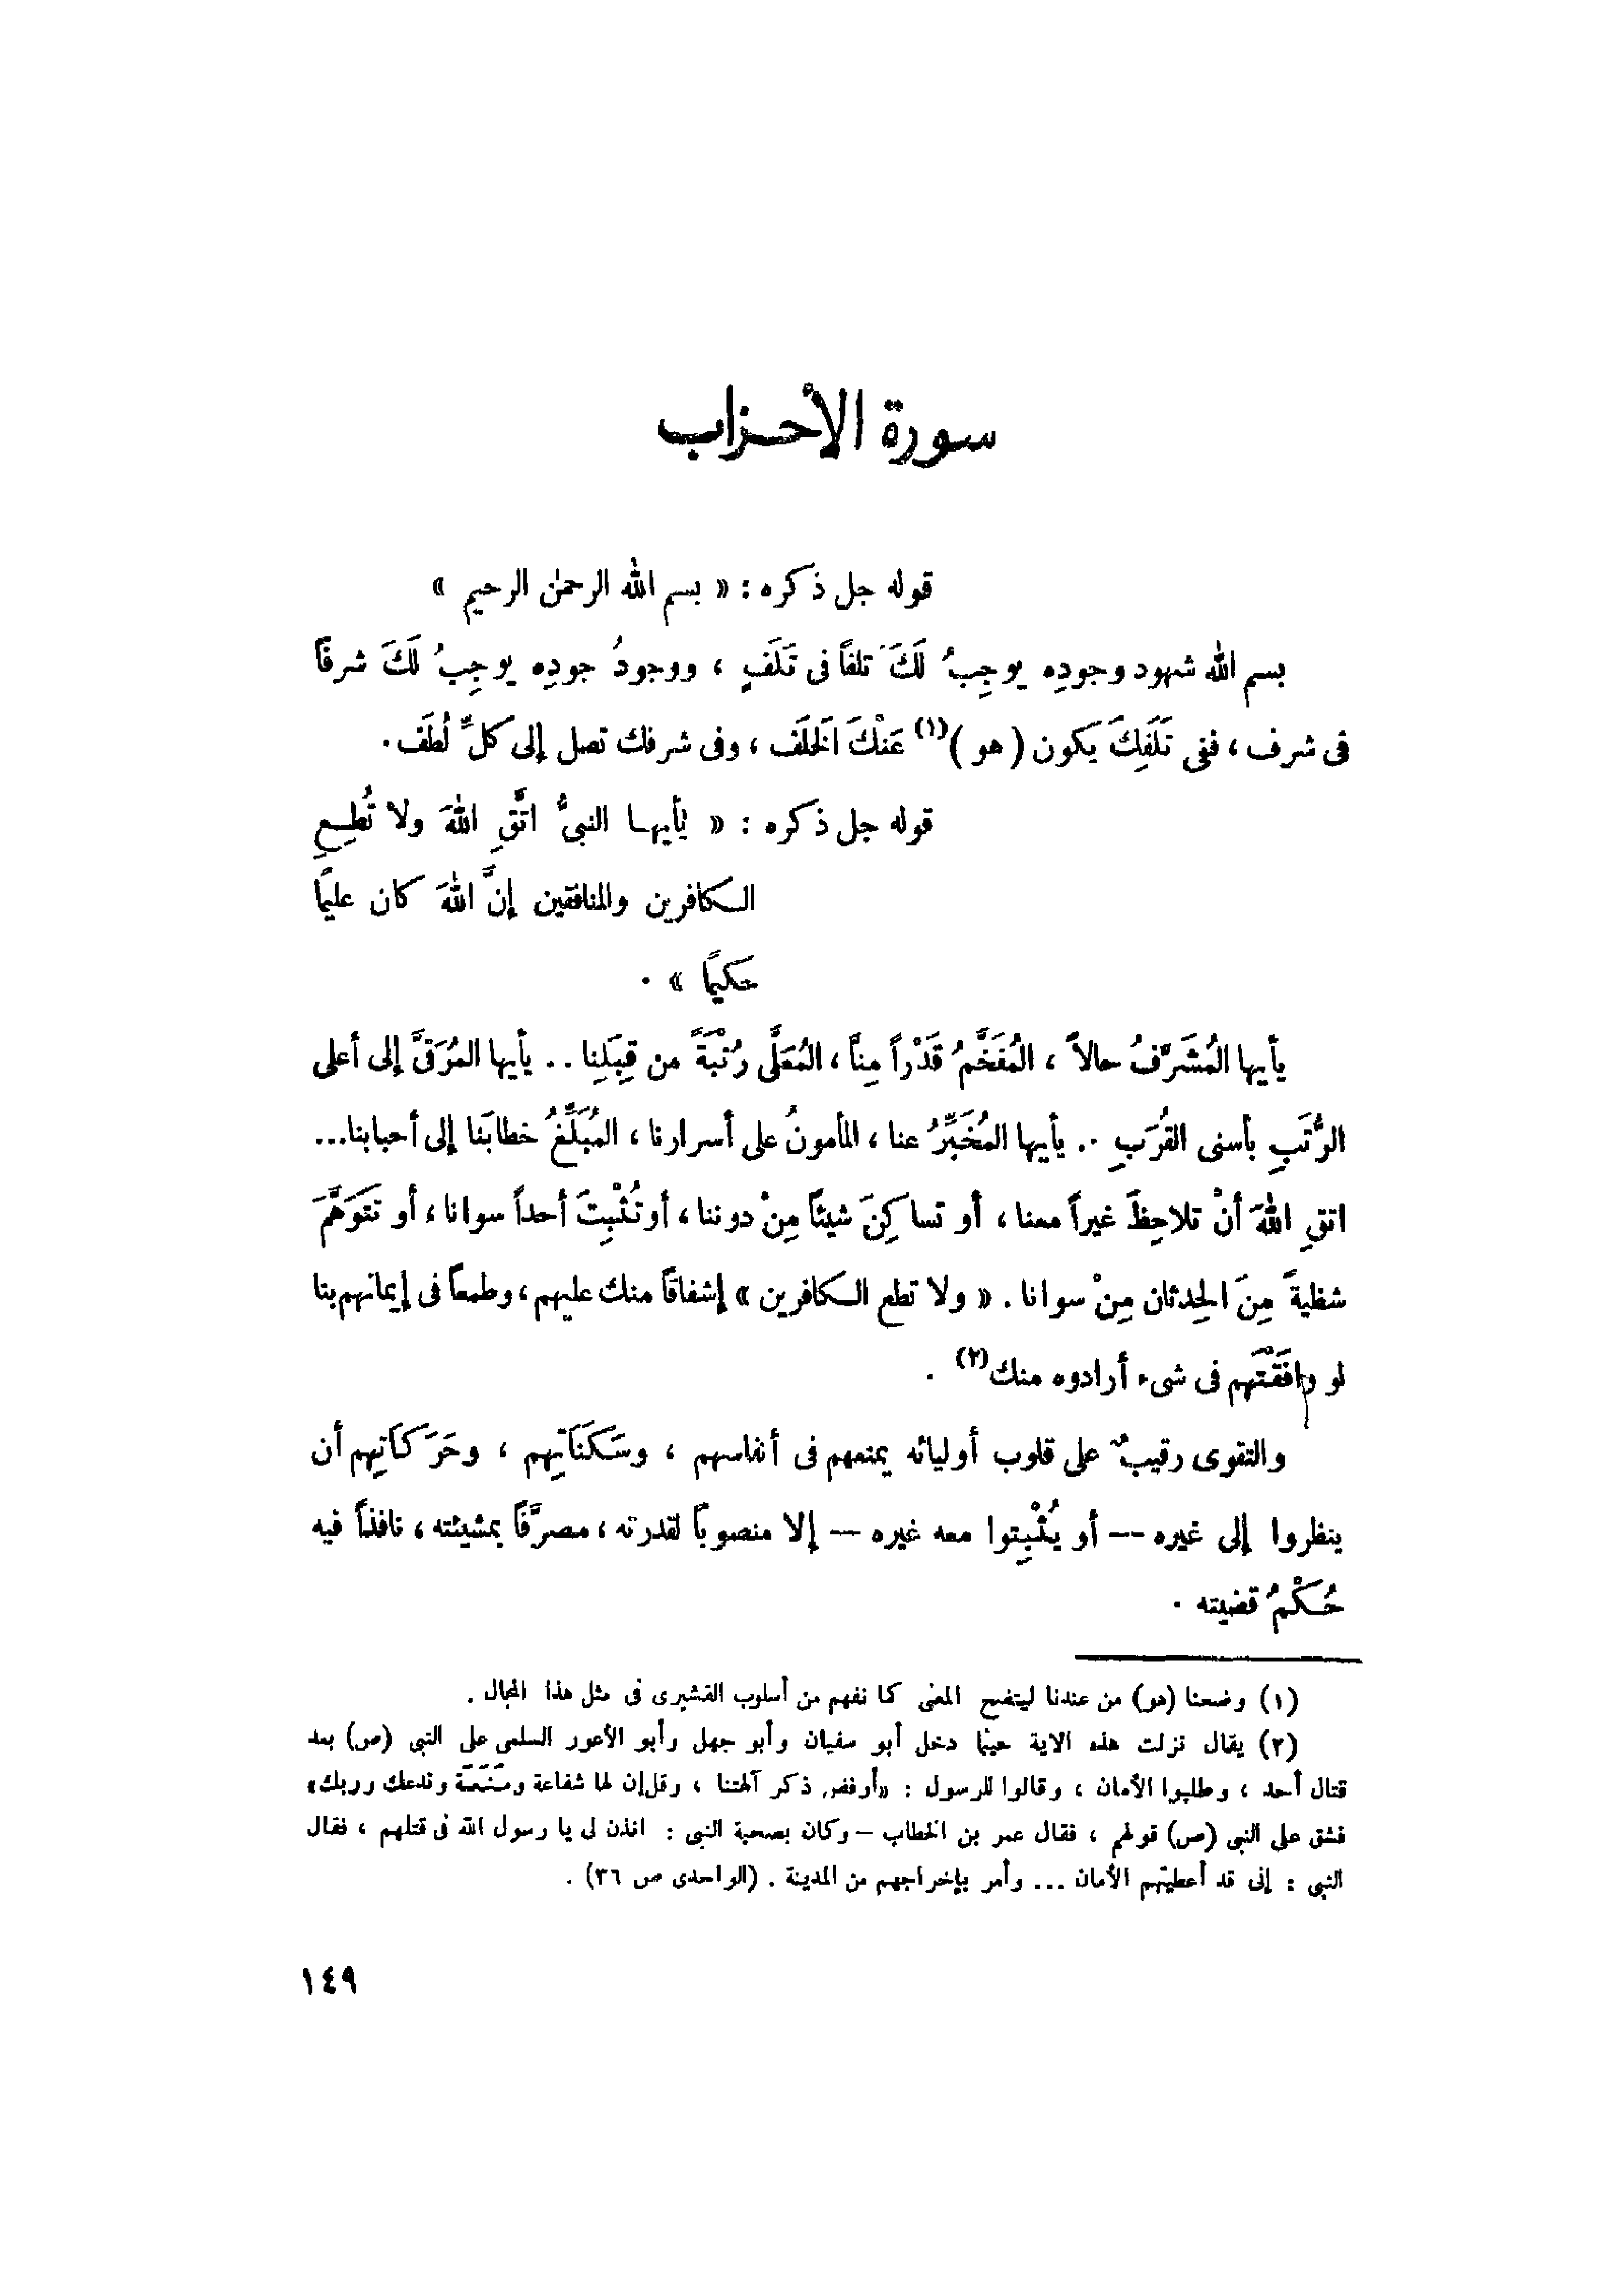 سورة الأحزاب
قوله جل ذكره : « بسم الله الرحمٰن الرحيم »
بسم الله شهود وجودِه يوجِبُ لَكَ تلفاً فى تَلَفٍ ، ووجودُ جودِه يوجِبُ لَكَ شرفاً
فى شرف ، ففى تَلَفِكَ يَكون ( هو )(١) عَنْكَ الَخلَف ، وفى شرفك تصل إلى كلِّ لُطَف .
قوله جل ذكره : « يٰأيهـا النبىُّ اتَّقِ اللهَ ولا تُطِـعِ
الـكافرين والمنافقين إنَّ اللهَ كان عليمًا
حكيمًا » .
يأيها المُشَرَّفُ حالاً ، المُفَخَّمُ قَدْراً مِنَّا ، المُعَلَّى رُتْبَةً من قِبَلِنا .. يأيها المُرَقَّى إلى أعلى
الرُّتَبِ بأسنى القُرَبِ .. يأيها المُخَبِّرُ عنا ، المأمونُ على أسرارنا ، المُبَلِّغُ خطابَنا إلى أحبابنا...
اتقِ اللهَ أنْ تلاحِظَ غيراً معنا ، أو تساكِنَ شيئاً مِنْ دوننا ، أو تُثْبِتَ أحداً سوانا ، أو تَتَوَهَّمَ
شظيةً مِنَ الحِدثان مِنْ سوانا . « ولا تطع الـكافرين » إشفاقاً منك عليهم ، وطمعاً فى إيمانهم بنا
لو وافَقْتَهم فى شىء أرادوه منك(٢) .
والتقوى رقيبٌ على قلوب أوليائه يمنعهم فى أنفاسهم ، وسَكَنَاتِهم ، وحَرَكاتِهم أن
ينظروا إلى غيره -- أو يُثْبِتوا معه غيره -- إلا منصوباً لقدرته ، مصرَّفاً بمشيئته ، نافذاً فيه
حُـكْمُ قضيته .
(١) وضعنا (هو) من عندنا ليتضح المعنى كما نفهم من أسلوب القشيرى فى مثل هذا المجال .
(٢) يقال نزلت هذه الآية حينما دخل أبو سفيان وأبو جهل وأبو الأعور السلمى على النبى (ص) بعد
قتال أحد ، وطلبوا الأمان ، وقالوا للرسول : «أرفض ذكر آلهتنا ، وقل إن لها شفاعة ومَنَعَة وندعك وربك»
فشق على النبى (ص) قولهم ، فقال عمر بن الخطاب – وكان بصحبة النبى : ائذن لى يا رسول الله فى قتلهم ، فقال
النبى : إنى قد أعطيتهم الأمان ... وأمر بإخراجهم من المدينة . (الواحدى ص ٣٦) .
١٤٩